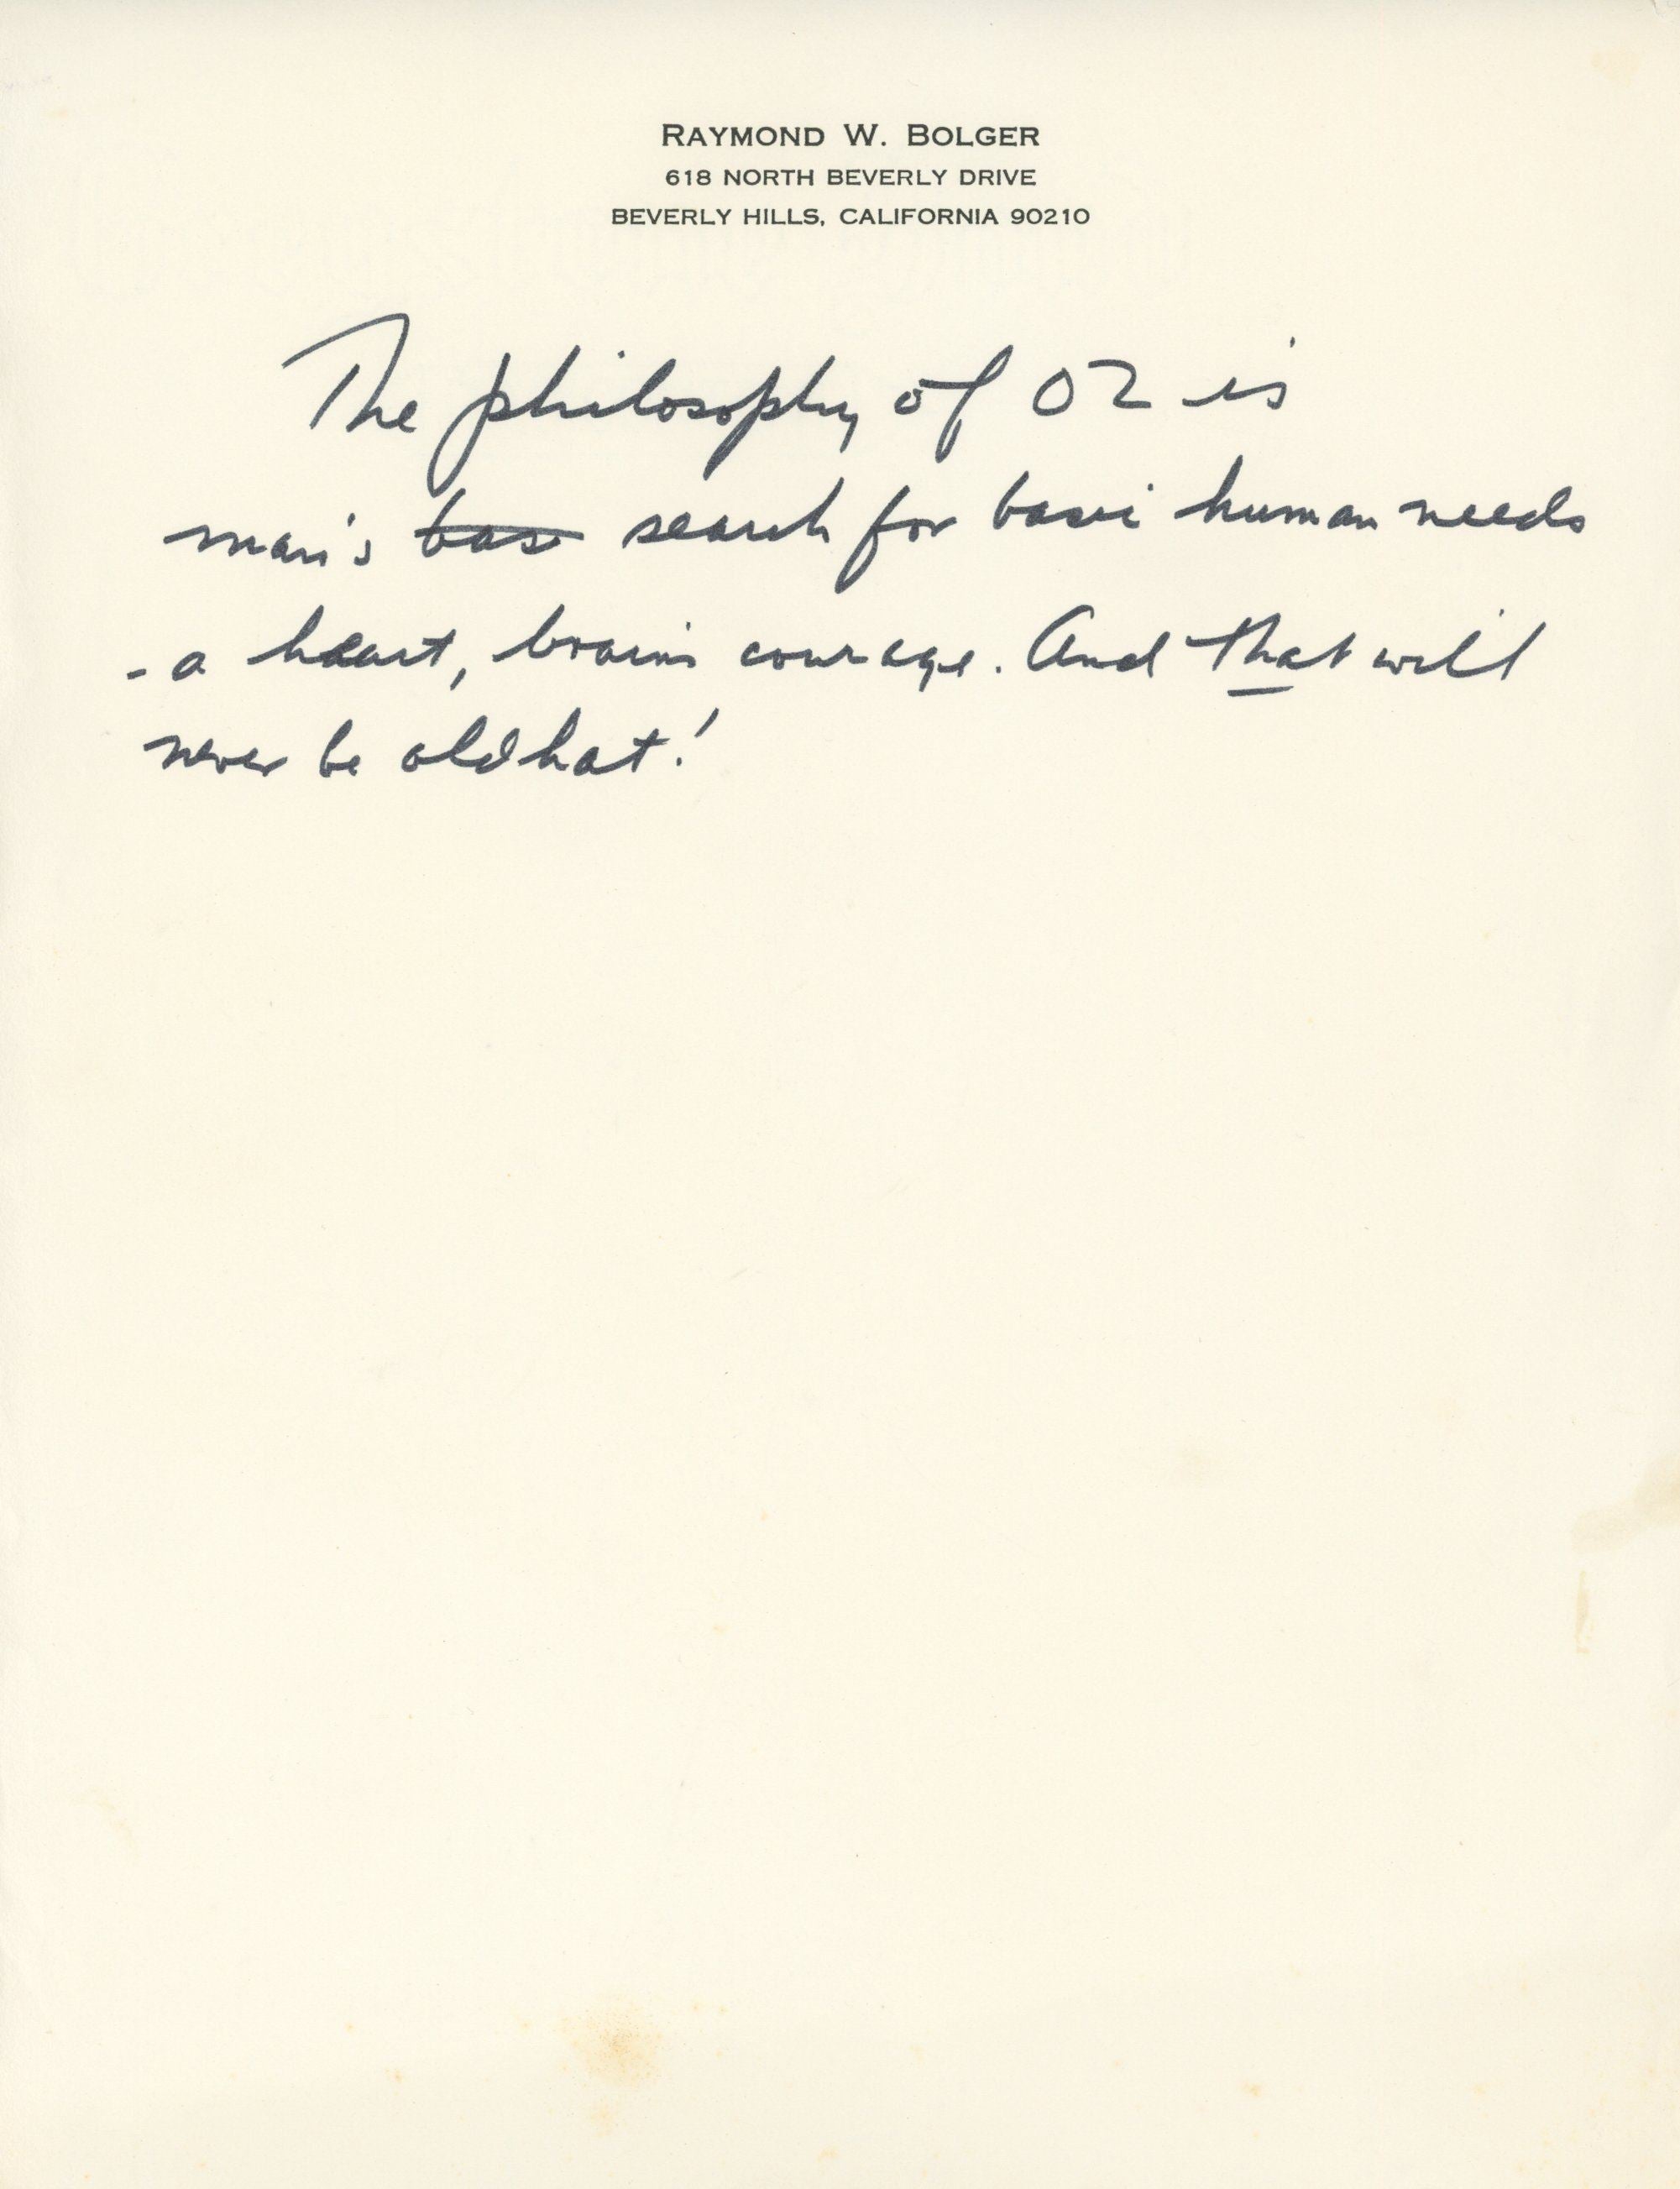 RAYMOND W. BOLGER
618 NORTH BEVERLY DRIVE
BEVERLY HILLS, CALIFORNIA 90210
The philosophy of OZ is
man's bas search for basic human needs
- a heart, brains courage. And that will
never be old hat!